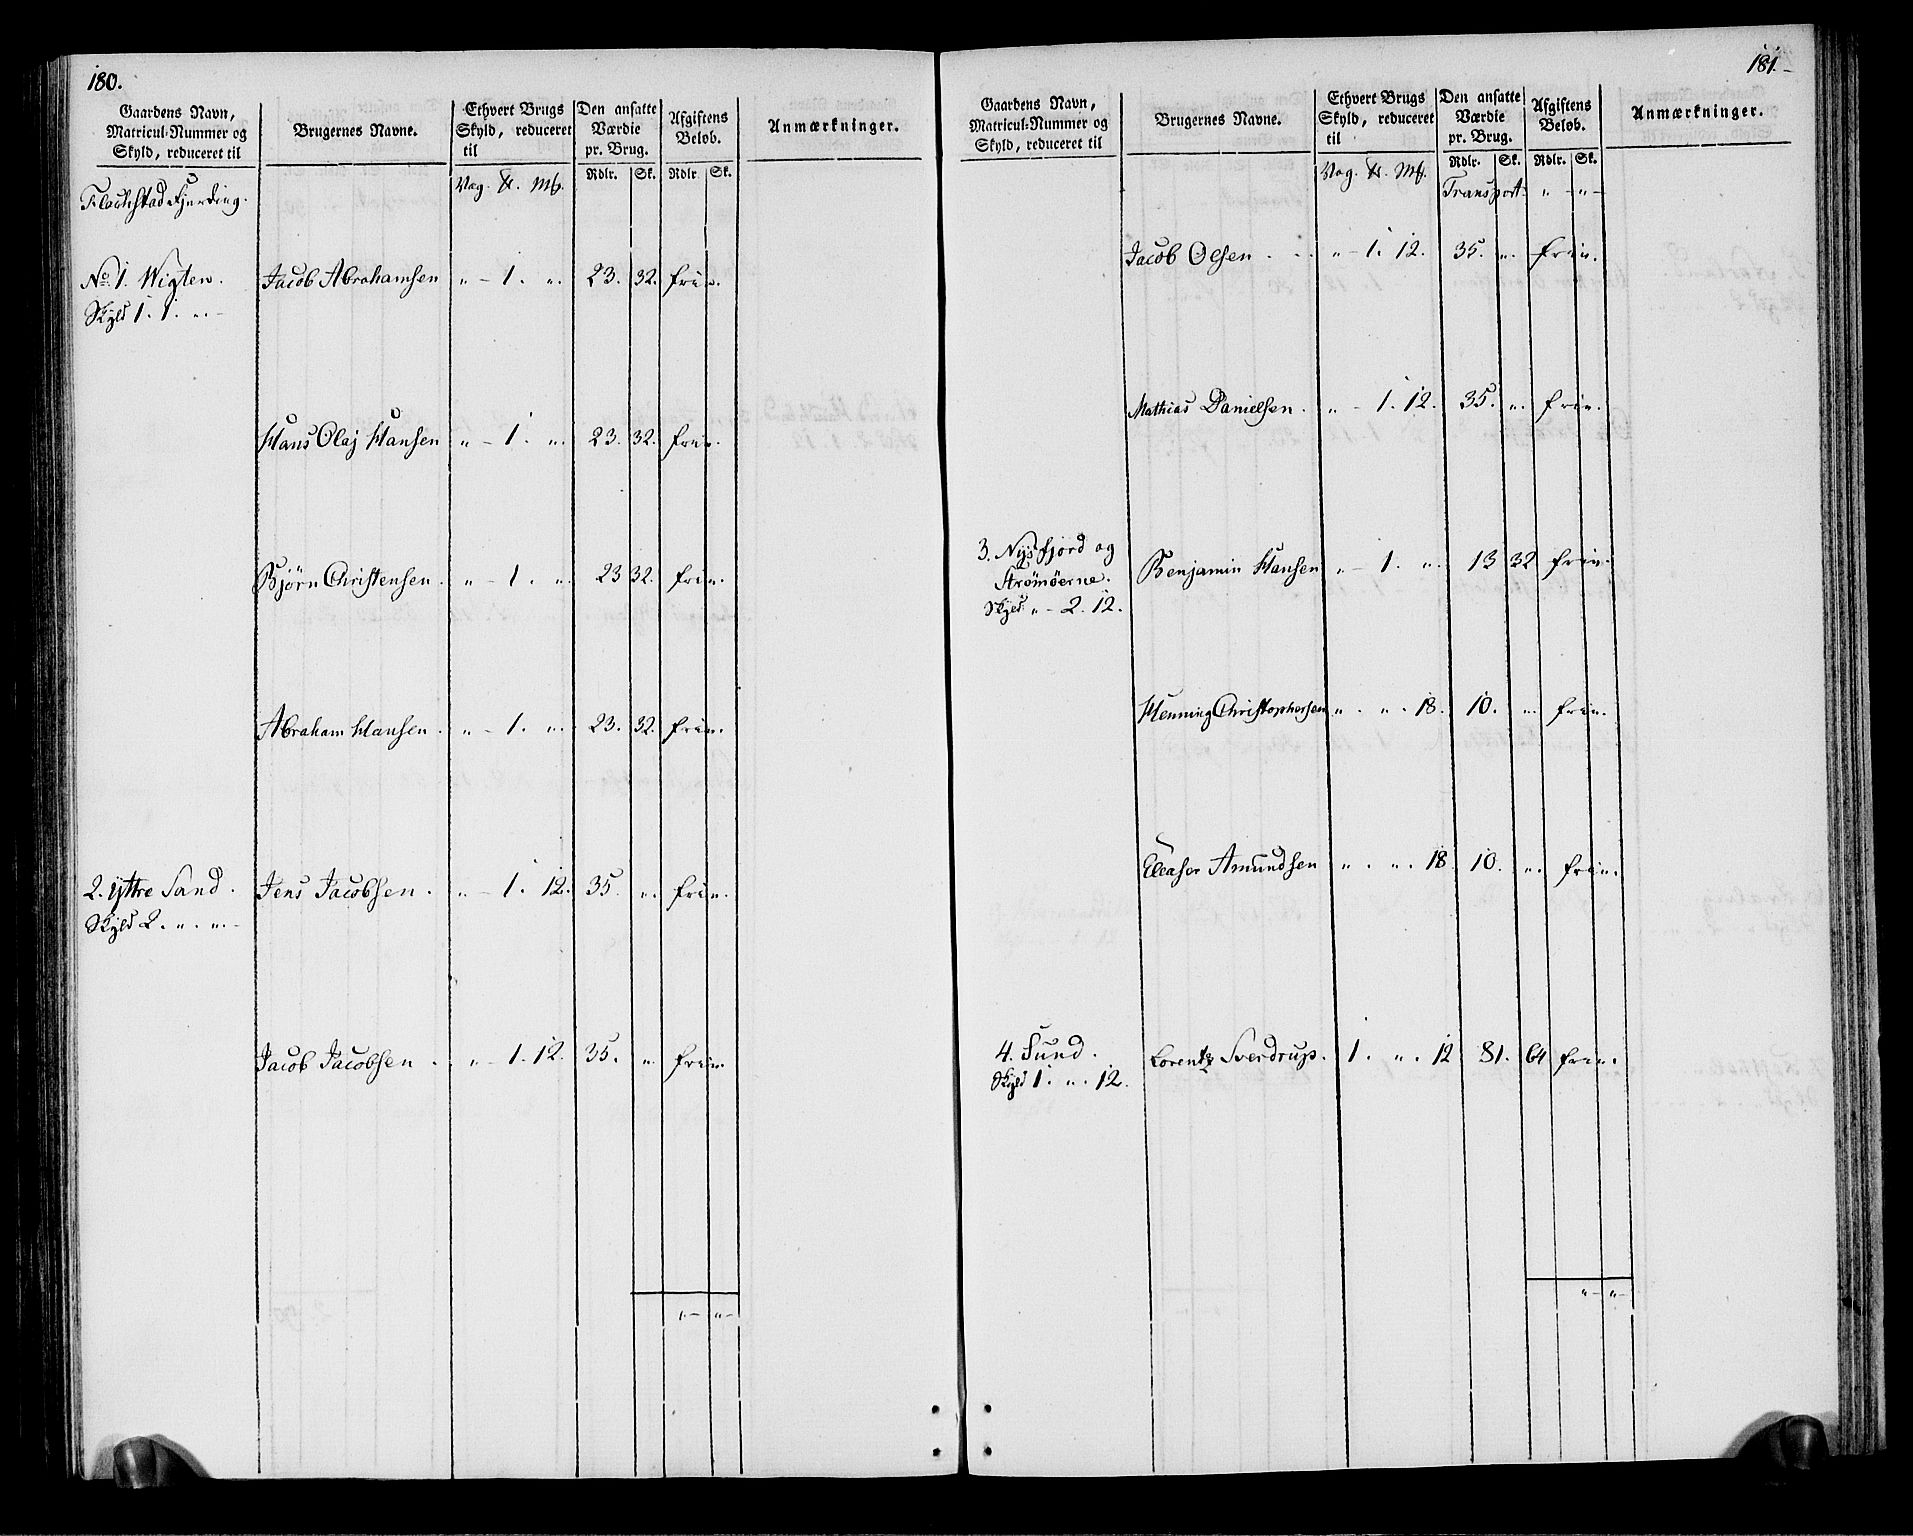 180.
Gaardens Navn, Matricul-Nummer og Skyld, reduceret til | Brugernes Navne. | Ethvert Brugs Skyld, reduceret til | Den ansatte Værdie pr. Brug. | Afgiftens Beløb. | Anmærkninger.
Vog. ℔. Mk. | Rdlr. | Sk. | Rdlr. | Sk.
Flachstad Fjerding.
No. 1. Wigten. | Jacob Abrahamsen | " – 1. ". | 23. | 32. | frie.
Skyld 1. 1. ". –
Hans Olaj Hansen | " – 1. ". | 23. | 32. | frie.
Bjørn Christensen. | " – 1. ". | 23 | 32. | frie.
Abraham Hansen. | " – 1. ". | 23. | 32. | frie.
2. Yttre Sand. | Jens Jacobsen. | " – 1. 12. | 35. | ". | frie.
Skyld 2. ". ". –
Jacob Jacobsen. | " – 1. 12. | 35. | ". | frie.
" – " –
181. –
Gaardens Navn, Matricul-Nummer og Skyld, reduceret til | Brugernes Navne. | Ethvert Brugs Skyld, reduceret til | Den ansatte Værdie pr. Brug. | Afgiftens Beløb. | Anmærkninger.
Vog. ℔. Mk. | Rdlr. | Sk. | Rdlr. | Sk.
Transport. " – " –
Jacob Olsen. . . | " – 1. 12. | 35. | ". | frie.
Mathias Danielsen. | " – 1. 12. | 35. | ". | frie.
3. Nysfjord og | Benjamin Hansen | " – 1. ". | 13 | 32 | frie.
Strömöerne.
Skyld " – 2. 12.
Henning Christophersen | ". ". 18. | 10. | ". | frie.
Eleaser Amundsen | ". ". 18 | 10. | ". | frie.
4. Sund. | Lorentz Sverdrup. | 1. ". 12 | 81. | 64 | frie.
Skyld 1. ". 12.
" – " –